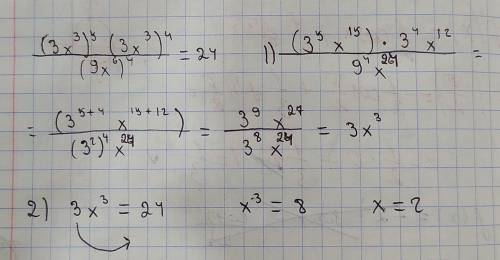 (3x³)⁵ (3x³)⁴ / (9x⁶)⁴ = 24 1) (3⁵ x¹⁵) · 3⁴ x¹² / 9⁴ x²⁴ =
= (3⁵⁺⁴ x¹⁵⁺¹²) / (3²)⁴ x²⁴ = 3⁹ x²⁷ / 3⁸ x²⁴ = 3x³
2) 3x³ = 24 x³ = 8 x = 2